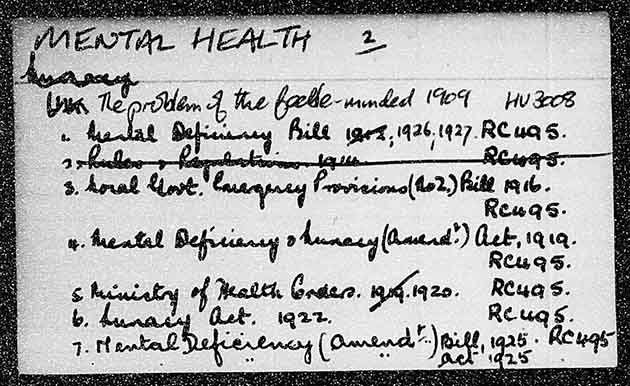 MENTAL HEALTH 2
Lunacy
The problem of the feeble-minded 1909 HV3008
1. Mental Deficiency Bill 1913, 1926, 1927. RC495.
2. Rules & Regulations 1914. RC495.
3. Local Govt. Emergency Provisions (No2.) Bill 1916.
RC495.
4. Mental Deficiency & Lunacy (Amendt.) Act, 1919.
RC495.
5 Ministry of Health Orders. 1919. 1920. RC495.
6. Lunacy Act. 1922. RC495.
7. Mental Deficiency (Amendt.) Bill, 1925. RC495
Act 1925